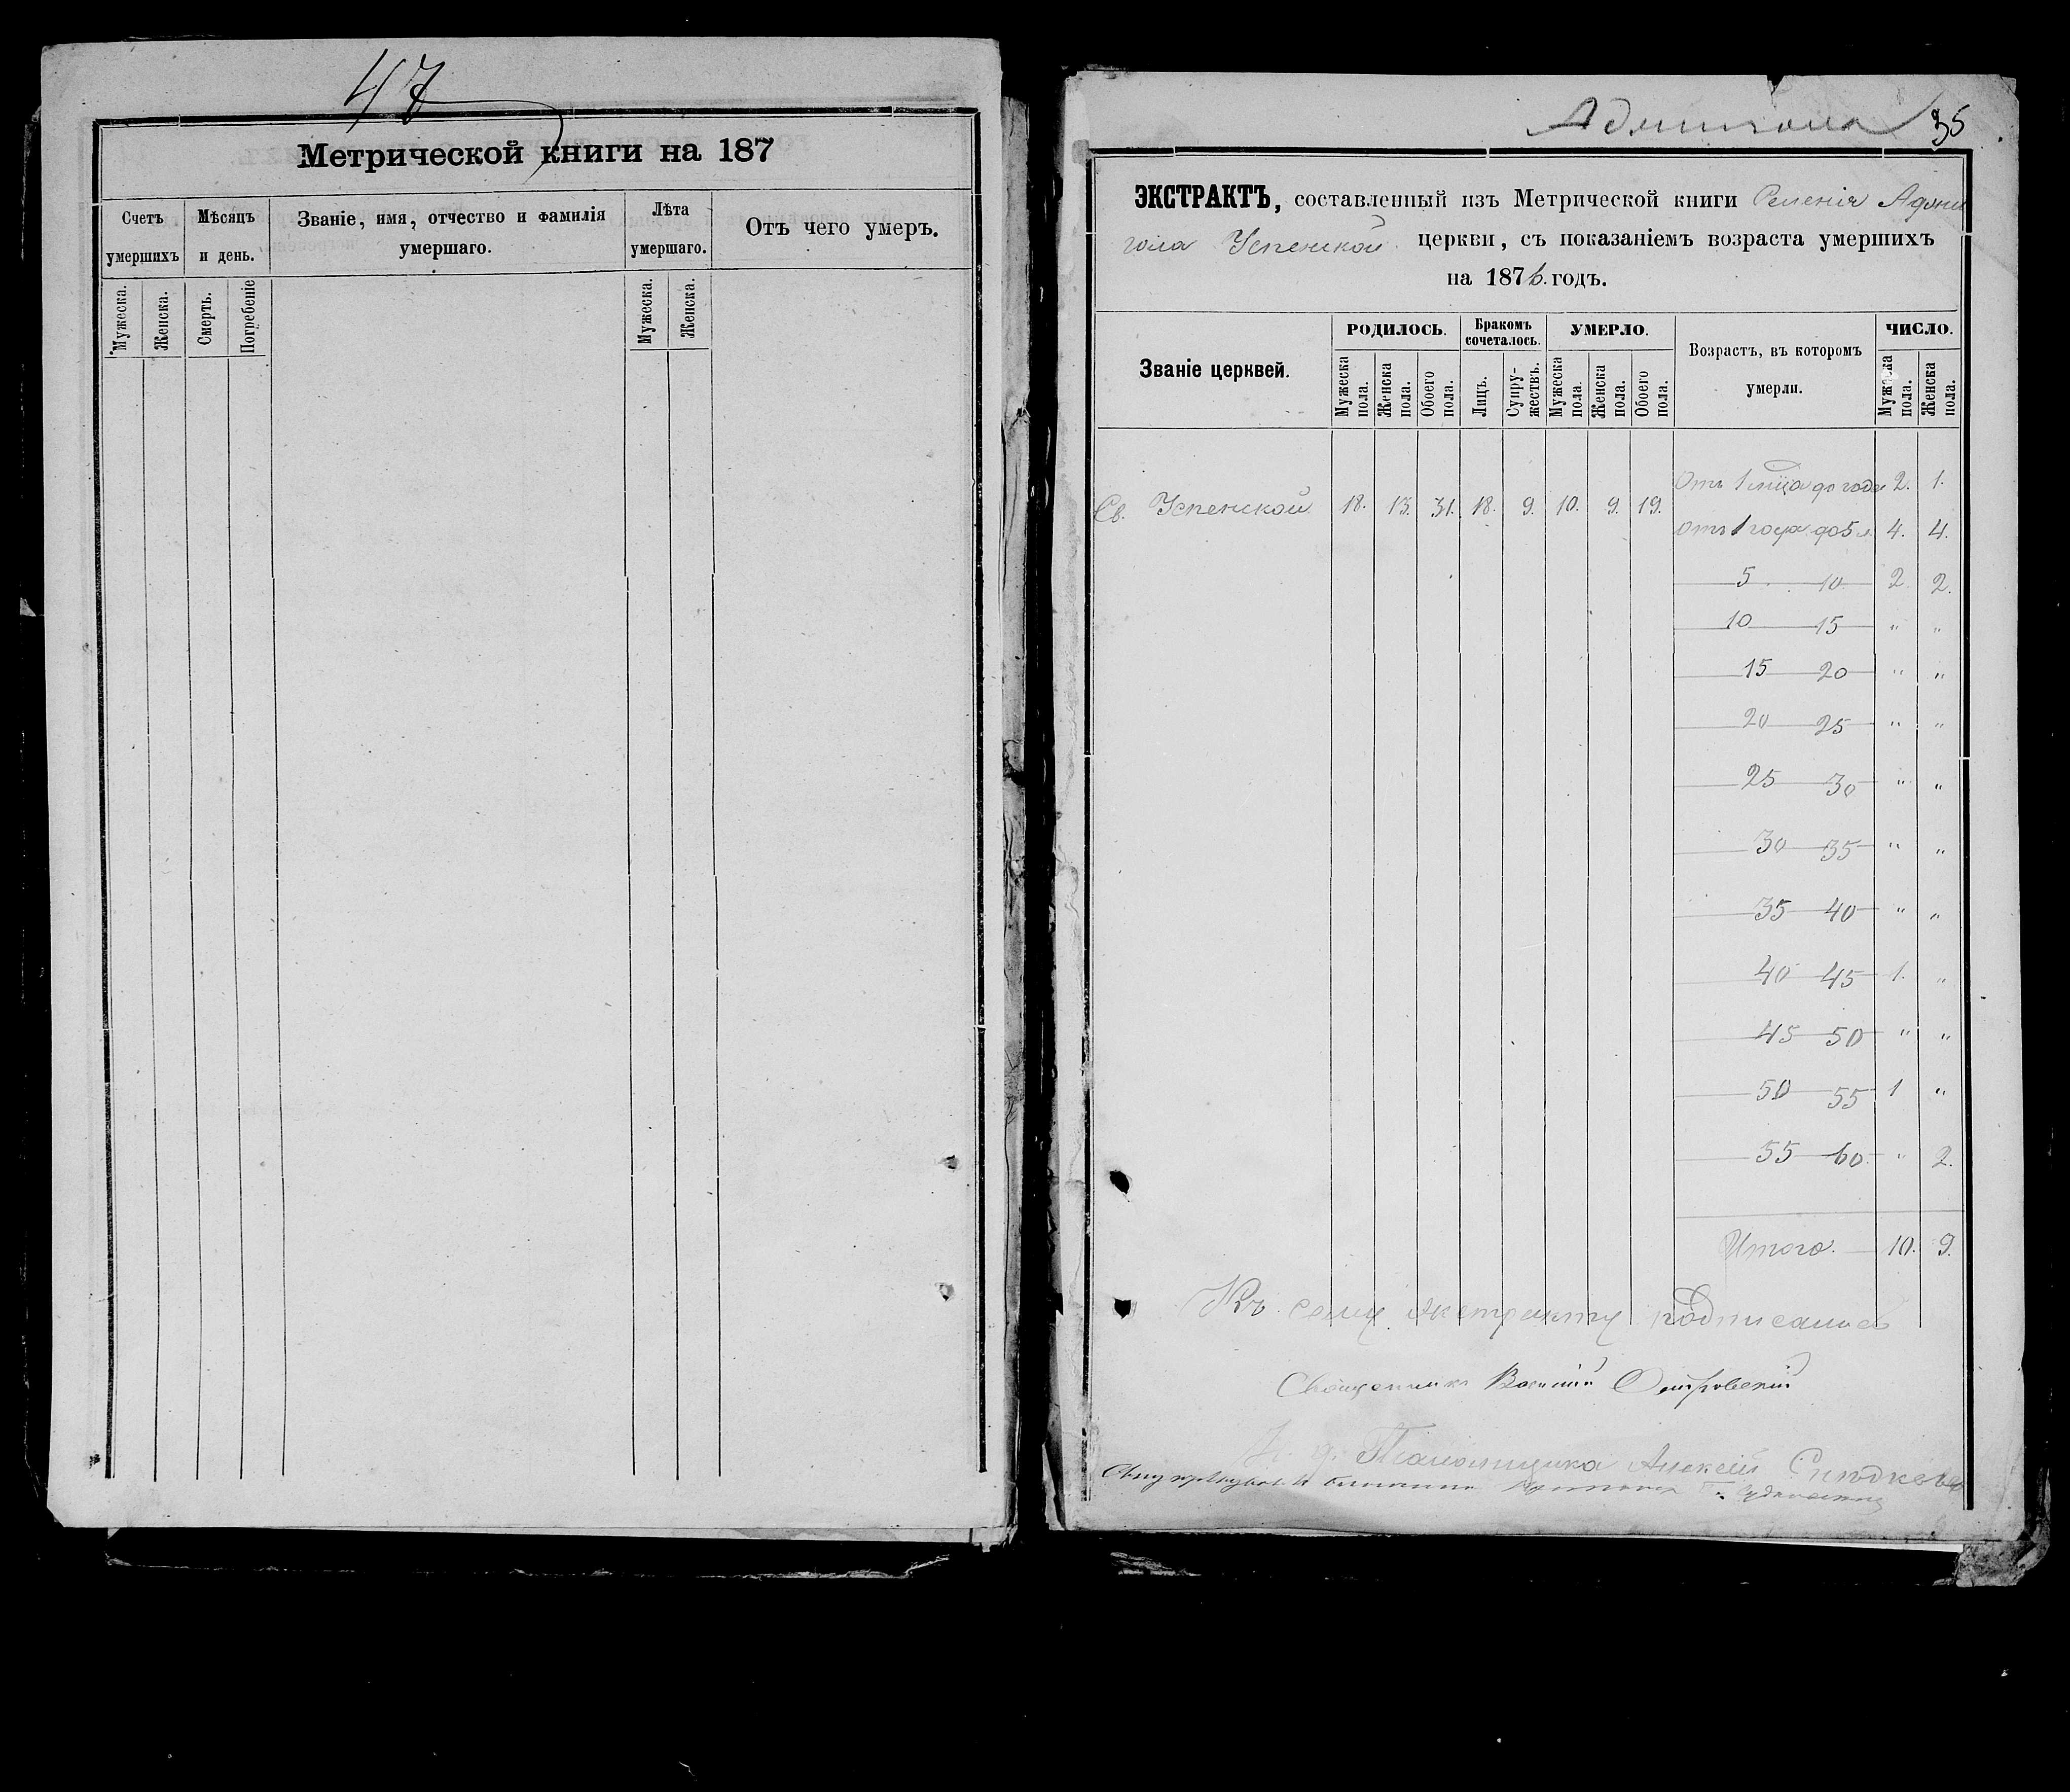 47
Метрической книги на 187
Счетъ умершихъ
Мѣсяцъ и день.
Званіе, имя, отчество и фамилія умершаго.
Лѣта умершаго.
Отъ чего умеръ.
Мужеска.
Женска.
Смерть.
Погребеніе
Мужеска.
Женска.
35
ЭКСТРАКТЪ, составленный изъ Метрической книги Селенія Аджи
гола Успенской церкви, съ показаніемъ возраста умершихъ
на 1876. годъ.
Званіе церквей.
РОДИЛОСЬ.
Бракомъ сочеталось.
УМЕРЛО.
Возрастъ, въ которомъ умерли.
ЧИСЛО.
Мужеска пола.
Женска пола.
Обоего пола.
Лицъ.
Супружествъ.
Мужеска пола.
Женска пола.
Обоего пола.
Мужеска пола.
Женска пола.
Отъ 1 мца до года 2. 1.
Св. Успенской 18. 13. 31. 18. 9. 10. 9. 19.
отъ 1 года до 5 л. 4. 4.
5 10 2 2.
10 15 " "
15 20 " "
20 25 " "
25 30 " "
30 35 " "
35 40 " "
40 45 1. "
45 50 " "
50 55 1 "
55 60 " 2.
Итого. 10. 9.
Къ сему экстракту подписались
Священникъ Василій
Алексей